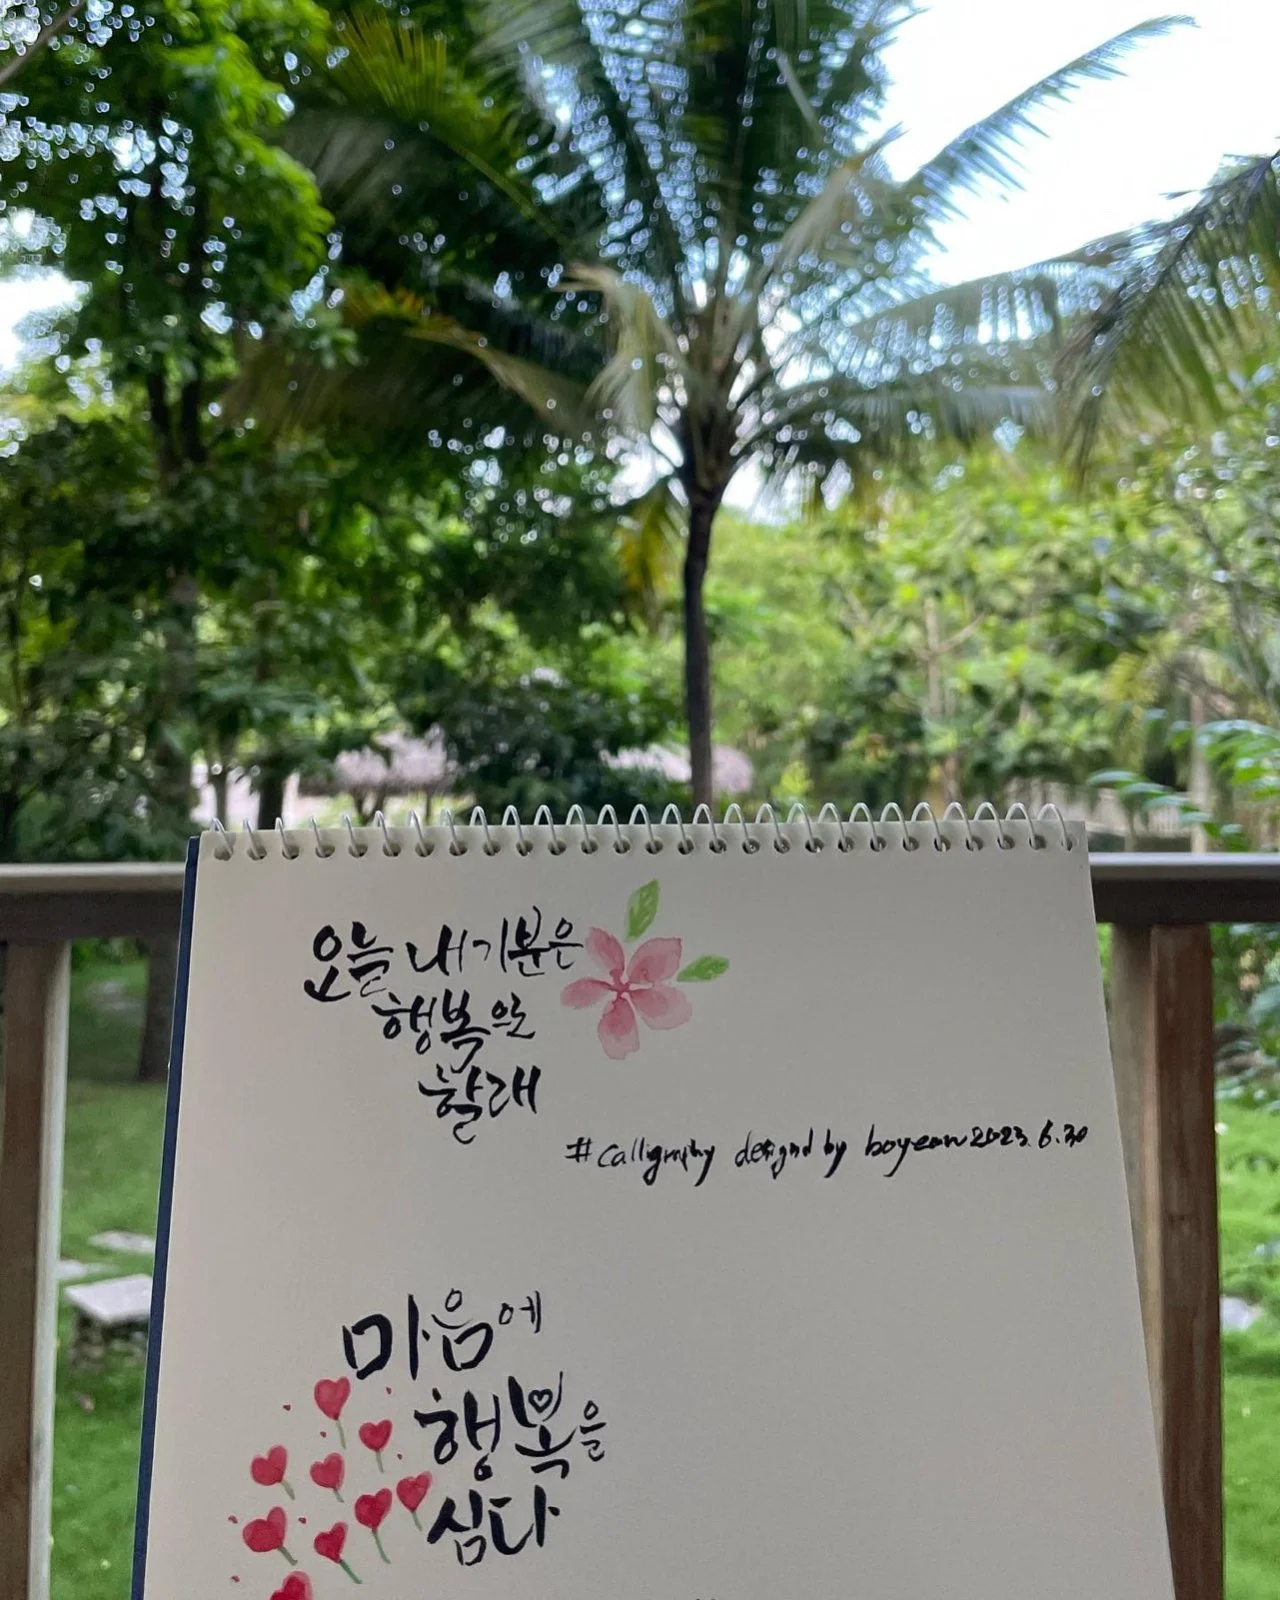 오늘 내 기분은
행복으로
할래
#calligraphy designd by boyeon 2023.6.30
마음에
행복을
심다